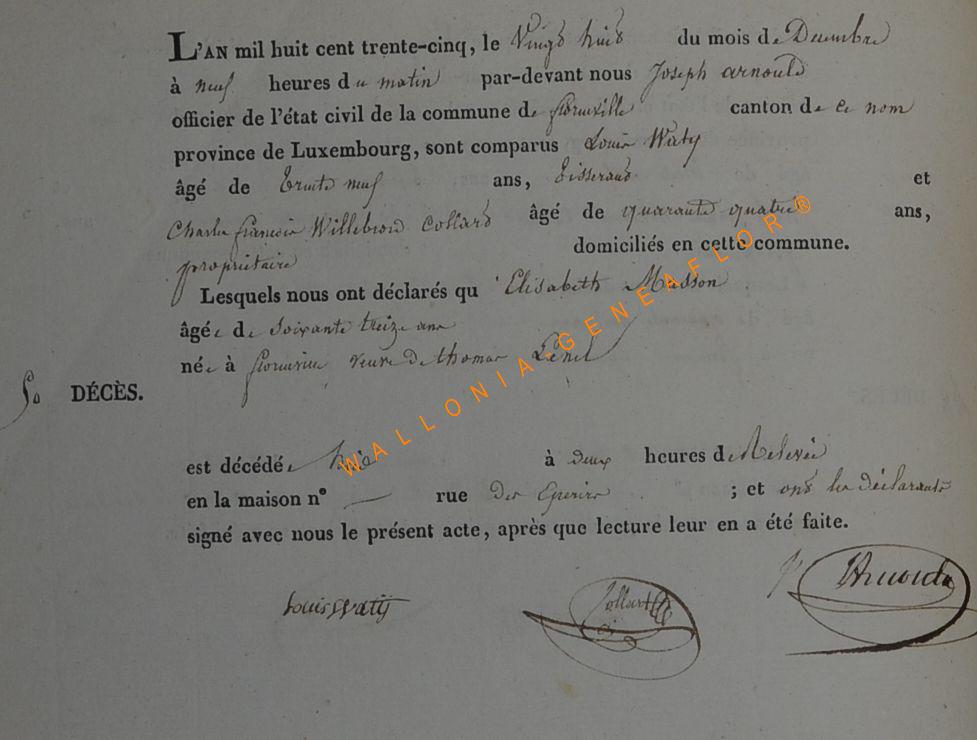 L'AN mil huit cent trente-cinq, le Vingt huit du mois de Decembre
à neuf heures du matin par-devant nous Joseph arnould
officier de l'état civil de la commune de florenville canton de ce nom
province de Luxembourg, sont comparus Louis Waty
âgé de trente neuf ans, tisserand et
Charles françois Willebrord Collard âgé de quarante quatre ans,
propriétaire domiciliés en cette commune.
Lesquels nous ont déclarés qu'Elisabeth Masson
âgée de soixante treize ans
née à veuve de thomas
50 DÉCÈS.
est décédée hier à deux heures de Relevée
en la maison n° — rue Des ; et ont les déclarants
signé avec nous le présent acte, après que lecture leur en a été faite.
Louis Watÿ Collard JArnould
WALLONIA GENEAFLOR®